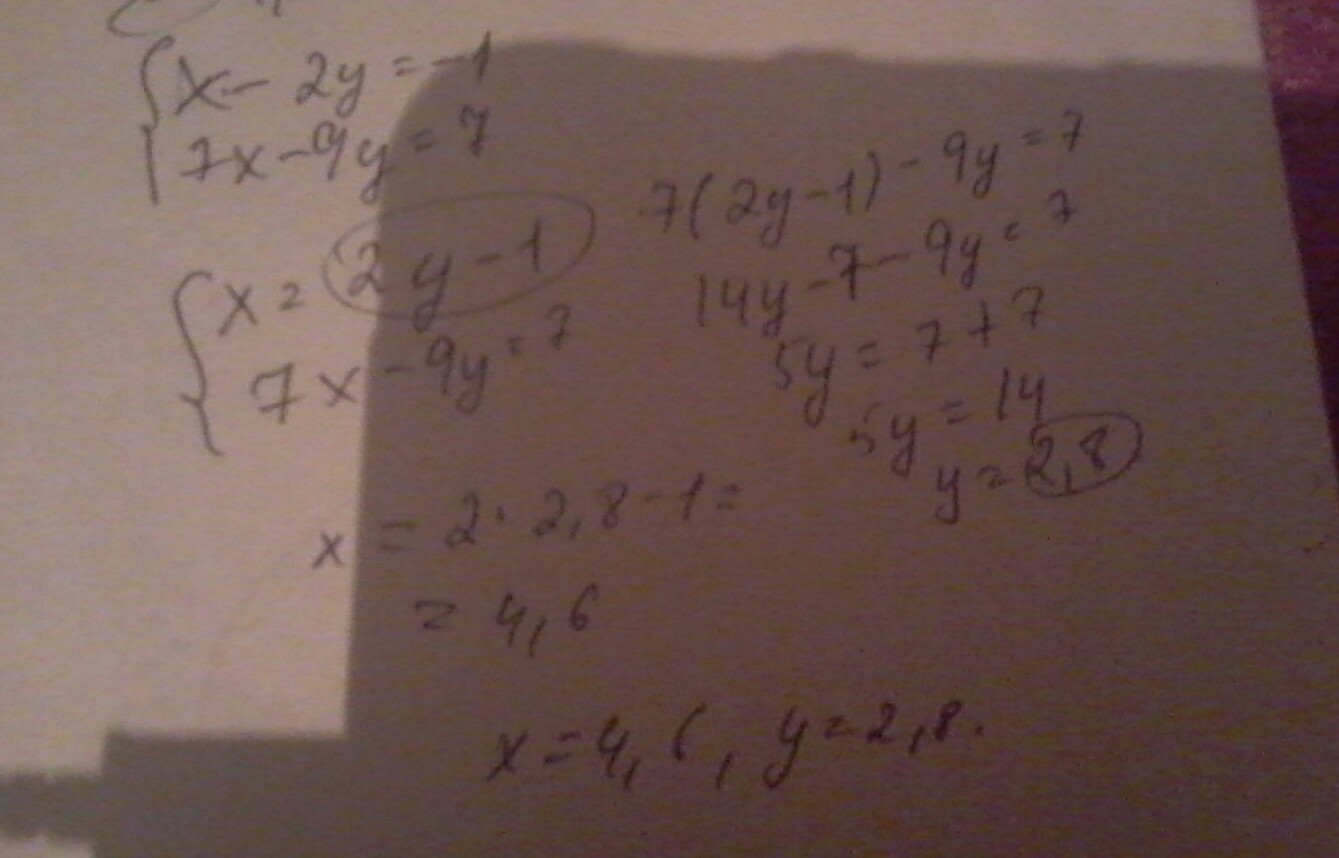 x - 2y = -1
7x - 9y = 7
x = 2y - 1
7x - 9y = 7
7(2y - 1) - 9y = 7
14y - 7 - 9y = 7
5y = 7 + 7
5y = 14
y = 2,8
x = 2 · 2,8 - 1 =
= 4,6
x = 4,6, y = 2,8.